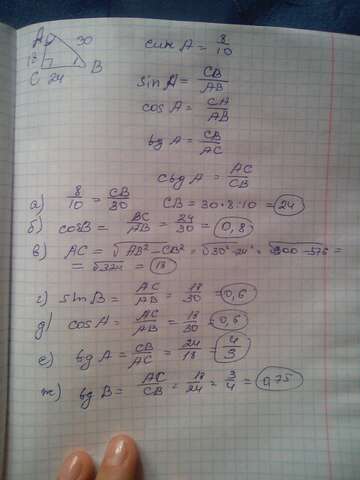 A 30 sin A = 8/10
18 C 24 B
sin A = CB/AB
cos A = CA/AB
tg A = CB/AC
ctg A = AC/CB
а) 8/10 = CB/30 CB = 30·8:10 = 24
б) cosB = BC/AB = 24/30 = 0,8
в) AC = √AB²-CB² = √30²-24² = √900-576 =
= √324 = 18
г) sin B = AC/AB = 18/30 = 0,6
д) cos A = AC/AB = 18/30 = 0,6
е) tg A = CB/AC = 24/18 = 4/3
ж) tg B = AC/CB = 18/24 = 3/4 = 0,75